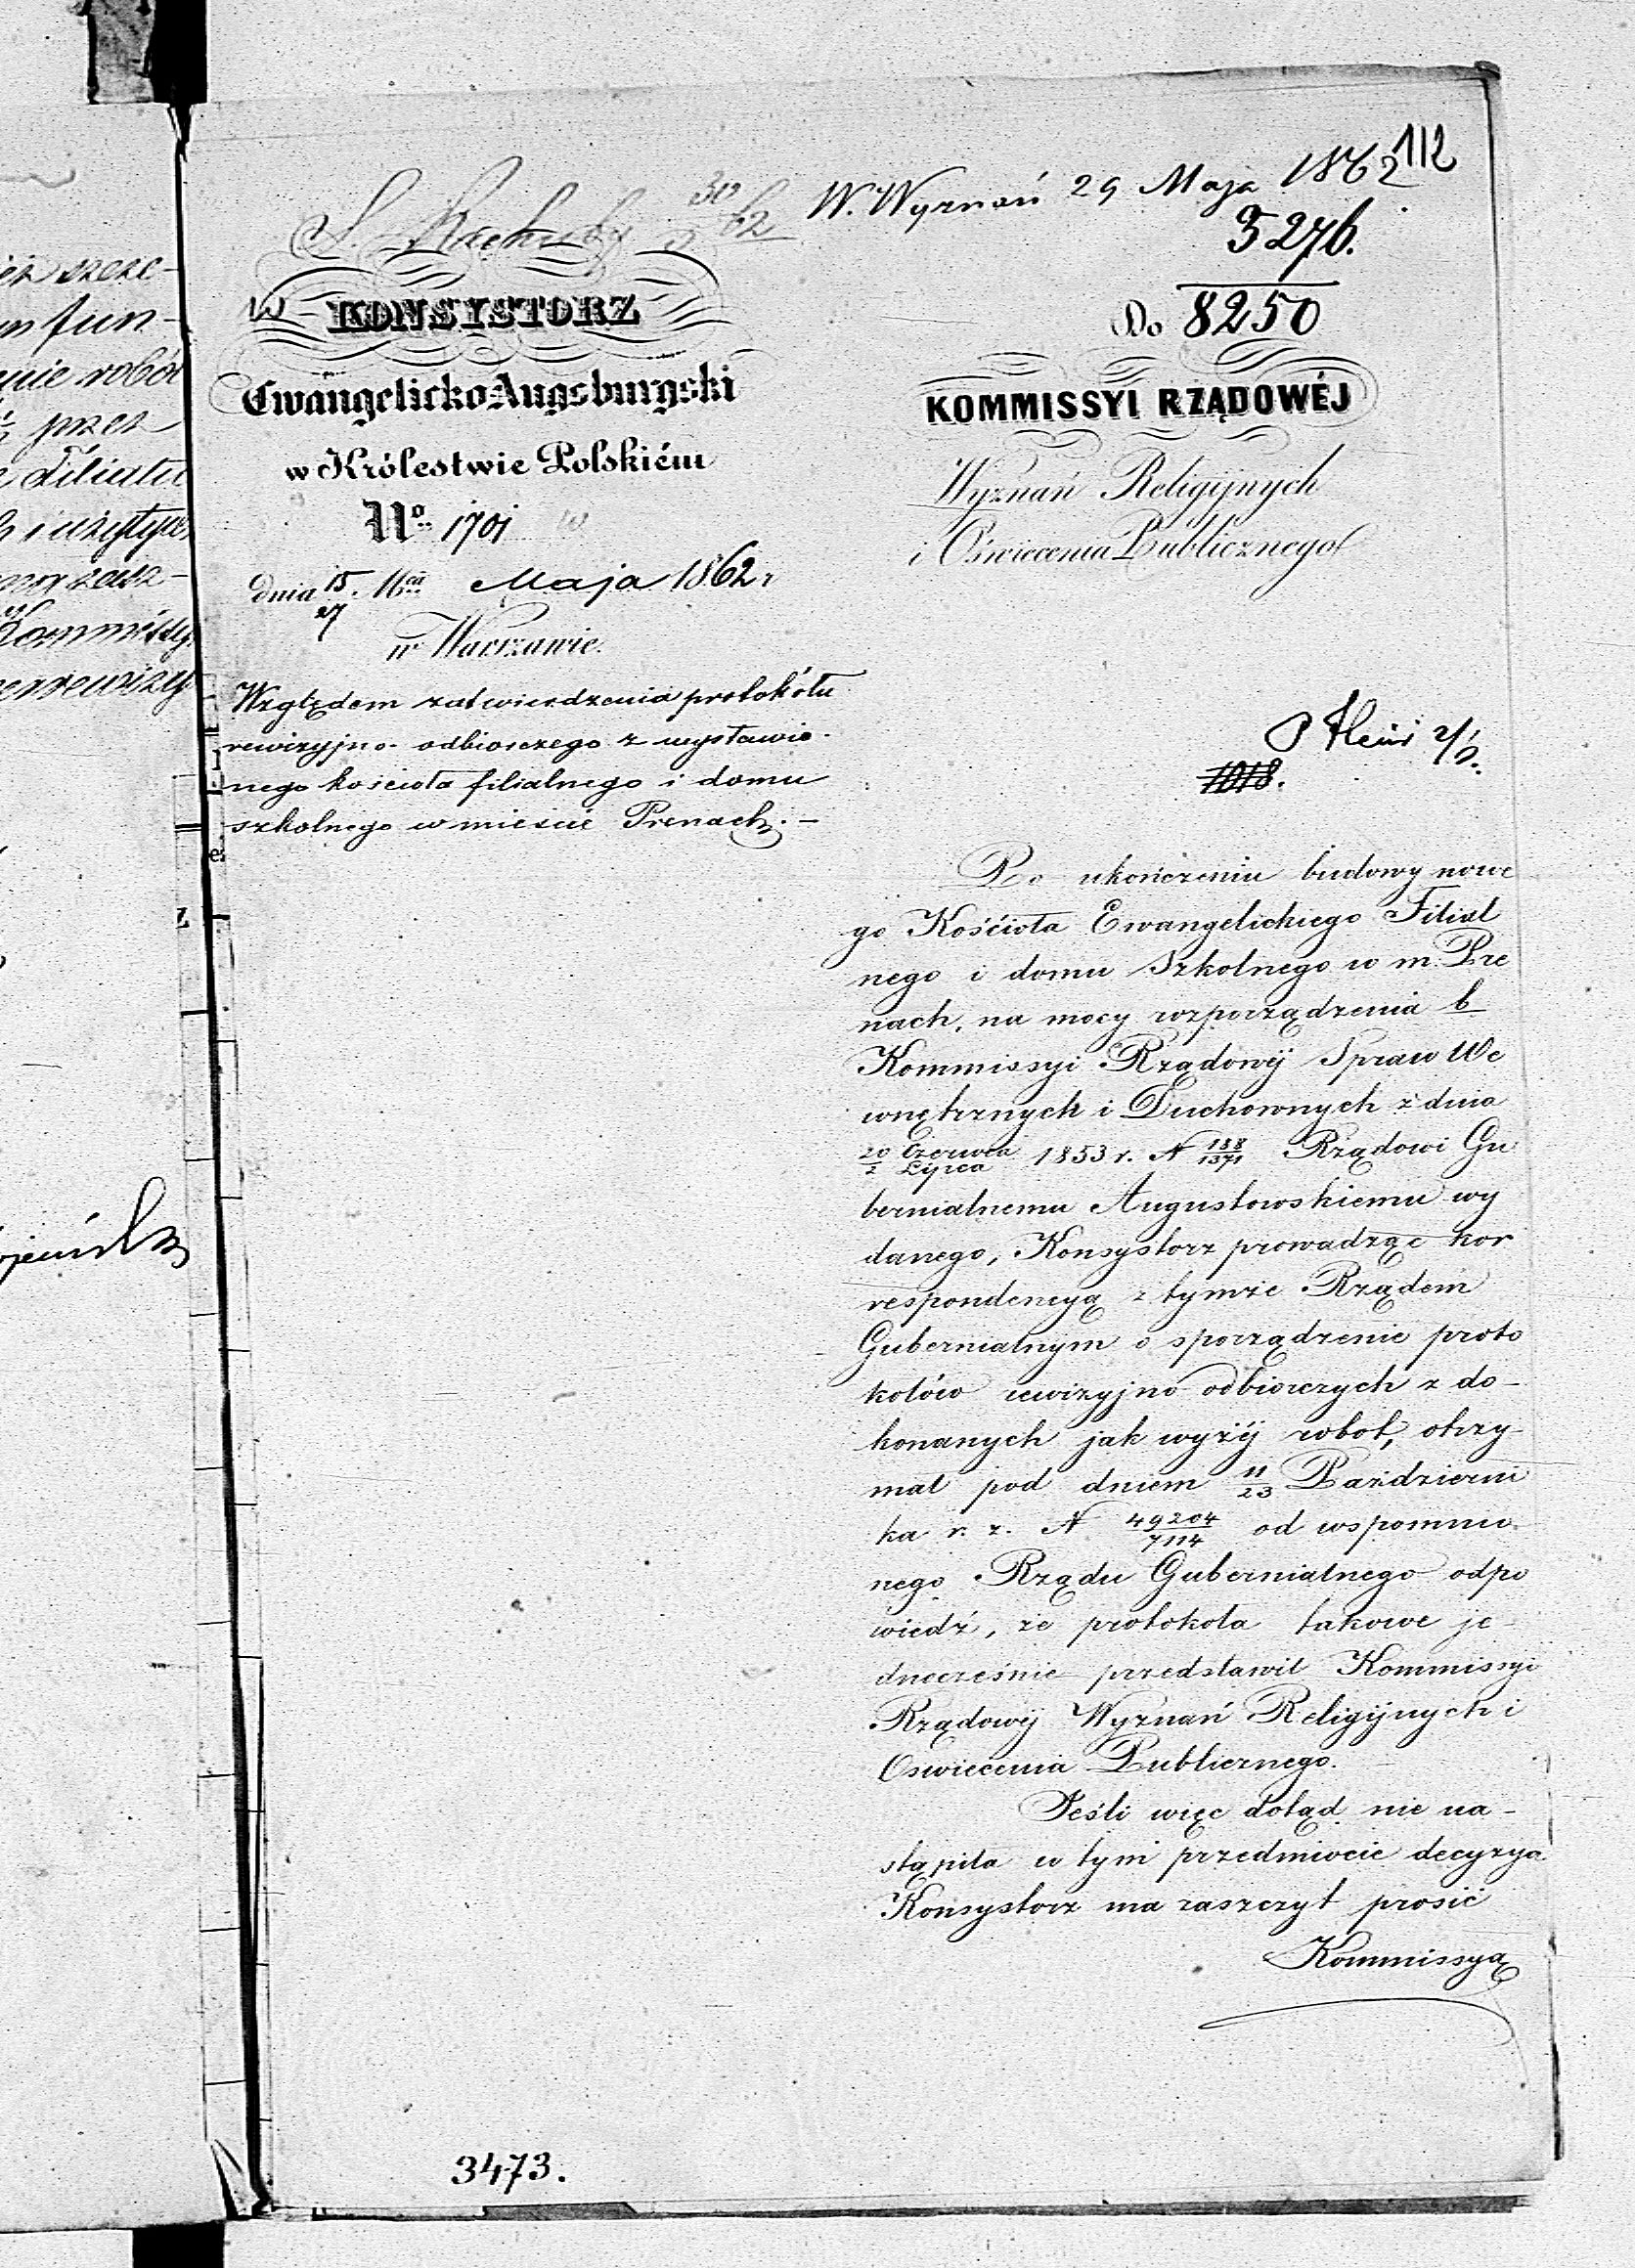 112
W. Wyznań 29 Maja 1862
5276.
8250
S. Rachuby 30/5 62
w
KONSYSTORZ
Ewangelicko-Augsburgski
w Królestwie Polskiém
No. 1701
dnia 15/27 Mca Maja 1862 r
w Warszawie.
Względem zatwierdzenia protokółu
rewizyjno-odbiorczego z wystawio-
nego kościoła filialnego i domu
szkolnego w mieście Prenach. –
Do
KOMMISSYI RZĄDOWÉJ
Wyznań Religijnych
i Oświecenia Publicznego
1018.
Po ukończeniu budowy nowe
go Kościoła Ewangelickiego Filial
nego i domu Szkolnego w m. Pre
nach, na mocy rozporządzenia b
Kommissyi Rządowéj Spraw We
wnętrznych i Duchownych z dnia
20/2 Czerwca/Lipca 1853 r. N 188/1371 Rządowi Gu
bernialnemu Augustowskiemu wy
danego, Konsystorz prowadząc kor
respondencyą z tymże Rządem
Gubernialnym o sporządzenie proto
kołów rewizyjno odbiorczych z do-
konanych jak wyżéj robot, otrzy-
mał pod dniem 11/23 Październi
ka r. z. N 49204/7114 od wspomnio
nego Rządu Gubernialnego odpo
wiedź, że protokoła takowe je-
dnocześnie przedstawił Kommissyi
Rządowéj Wyznań Religijnych i
Oswiecenia Publicznego.
Jeśli więc dotąd nie na-
stąpiła w tym przedmiocie decyzya
Konsystorz ma zaszczyt prosić
Kommissyą
3473.